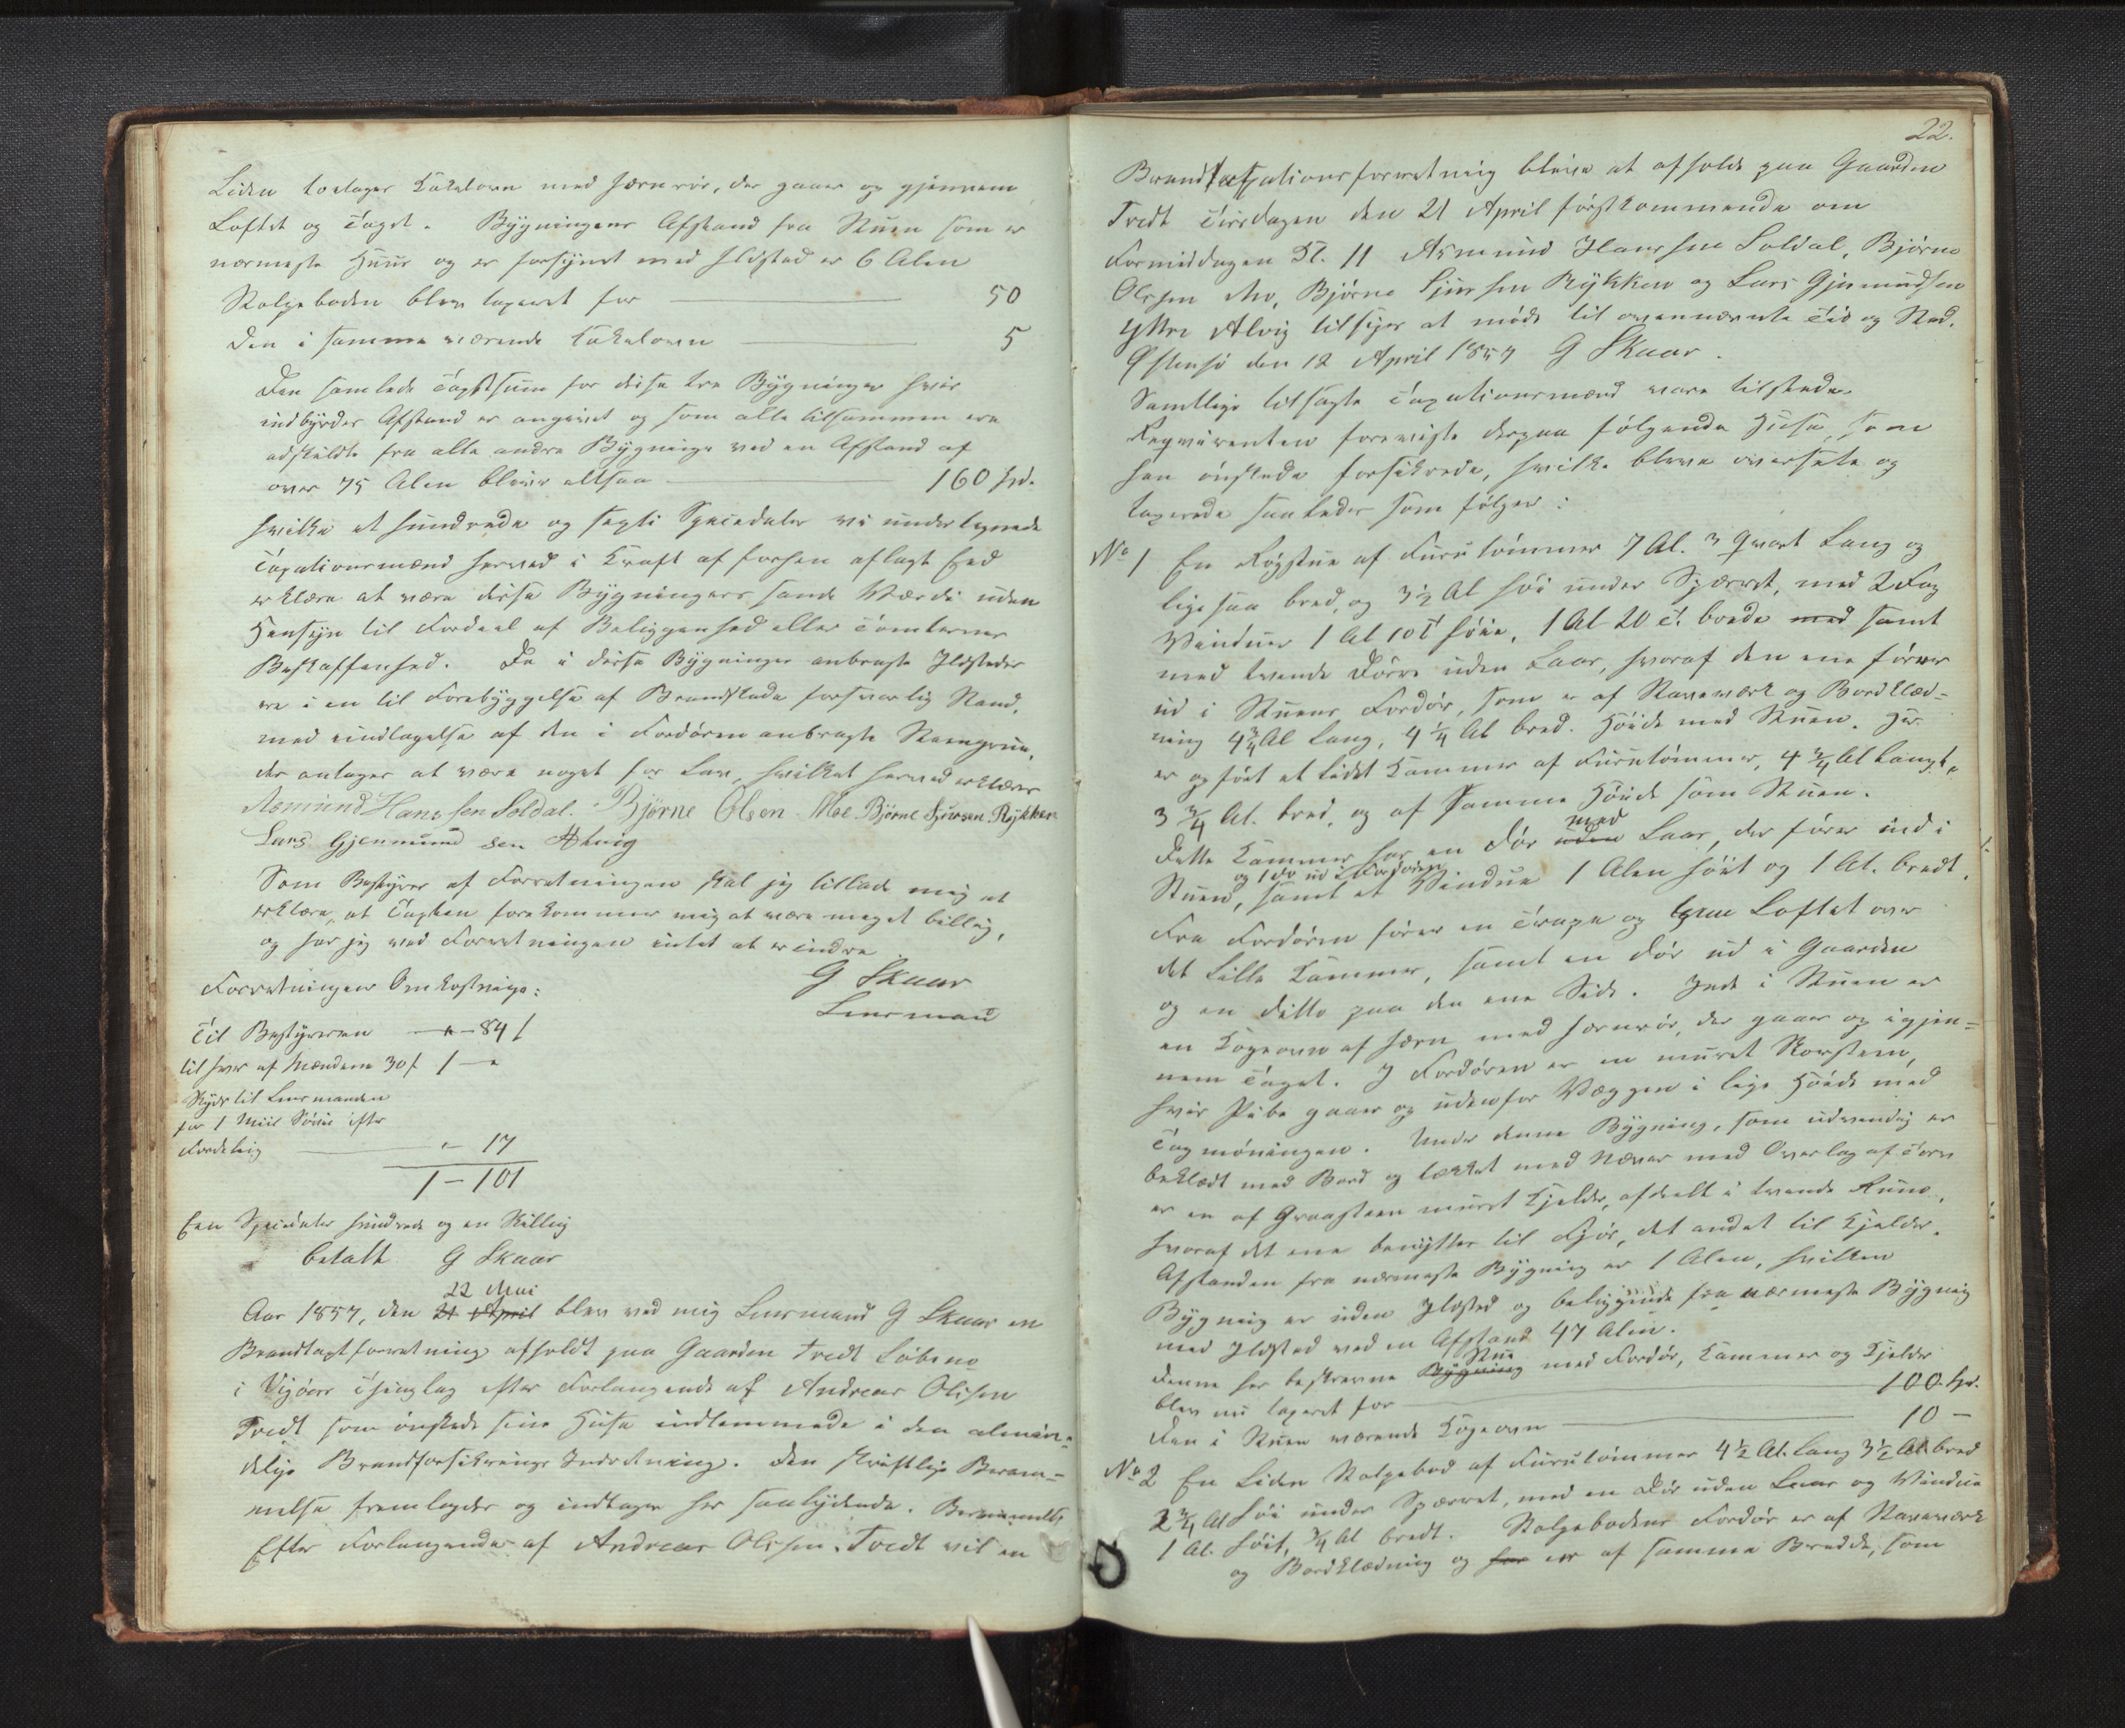 Liden toetages Kakelovn med Jernrör, der gaaer op gjennem
Loftet og Taget. Bygningens Afstand fra Stuen som er
nærmeste Huus og er forsynet med Ildsted er 6 Alen
Stolpeboden blev taxeret for 50
Den i samme værende Kakelovn 5
Den samlede Taxtsum for disse tre Bygninger hvis
indbyrdes Afstand er angivet og som alle tilsammen ere
adskildte fra alle andre Bygninger ved en Afstand af
over 75 Alen bliver altsaa 160 Spd.
hvilke et hundrede og sexti Speciedaler vi undertegnede
Taxationsmænd herved i Kraft af forhen aflagt Eed
erklære at være disse Bygningers sande Værdi uden
Hensyn til Fordeel af Beliggenhed eller Tomternes
Beskaffenhed. De i disse Bygninger anbragte Ildsteder
ere i en til Forebyggelse af Brandskade forsvarlig Stand,
med undtagelse af den i Fordören anbragte Steengrue,
der antages at være noget for Lav, hvilket herved erklæres
Asmund Hanssen Soldal. Björne Olsen Moe. Björne Sjursen Rykken
Lars Gjermund sen Alvig
Som Bestyrer af Forretningen skal jeg tillade mig at
erklære, at Taxten forekommer mig at være meget billig,
og har jeg ved Forretningen intet at erindre
G Skaar
Lensmand
Forretningens Omkostninger:
Til Bestyreren " – 84 ß
til hver af Mændene 30 ß 1 – "
Skyds til Lensmanden
for 1 Miil Söveie efter
Fordeling " – 17
1 – 101
Een Speciedaler hundrede og en Skilling
betalt G Skaar
22 Mai
Aar 1857, den 21 April blev ved mig Lensmand G Skaar en
Brandtaxtforretning afholdt paa Gaarden Tvedt Löbeno
i Vigöers Thinglag efter Forlangende af Andreas Olssen
Tvedt som önskede sine Huse indlemmede i den almin-
delige Brandforsikrings Indretning. Den skriftlige Beram-
melse fremlagdes og indtages her saalydende. Berammelse
Efter Forlangende af Andreas Olssen Tvedt vil en
22.
Brandtaxationsforretning blive at afholde paa Gaarden
Tvedt Tirsdagen den 21 April förstkommende om
Formiddagen Kl. 11 Asmund Hanssen Soldal, Björne
Olssen Mo, Björne Sjurssen Rykken og Lars Gjermundsen
Ytre Alvig tilsiges at möde til ovennævnte Tid og Sted.
Östensö den 12 April 1857 G Skaar.
Samtlige tilsagte Taxationsmænd vare tilstede.
Reqvirenten foreviste derpaa fölgende Huse, som
han önskede forsikrede, hvilke bleve overseete og
taxerede saaledes som fölger:
No 1 En Rögstue af Furutömmer 7 Al. 3 Qvart Lang og
ligesaa bred, og 3½ Al höi under Spærret, med 2 Fag
Vinduer 1 Al 10 T höie, 1 Al 20 T. brede med samt
med tvende Dörre uden Laas, hvoraf den ene förer
ud i Stuens Fordör, som er af Stavværk og Bordklæd-
ning 4¾ Al Lang, 4¼ Al bred. Höide med Stuen. Her
er opfört et Lidet Kammer af Furutömmer, 4¾ Al Langt,
3¾ Al. bred, og af Samme Höide som Stuen.
med
Dette Kammer har en Dör uden Laas, der förer ind i
og 1 do ud i Fordören
Stuen, samt et Vindue 1 Alen höit og 1 Al. bredt.
Fra Fordören förer en Trappe op paa Loftet over
det Lille Kammer, samt en Dör ud i Gaarden
og en ditto paa den ene Side. Inde i Stuen er
en Kogeovn af Jern med Jernrör, der gaaer op igjen-
nem Taget. I Fordören er en muret Skorsteen,
hvis Pibe gaaer op udenfor Væggen i lige Höide med
Tagmöningen. Under denne Bygning, som udvendig er
beklædt med Bord og tækket med Næver med Overlag af Torv
er en af Graasteen muret Kjelder, afdeelt i tvende Rum,
hvoraf det ene benyttes til Fjös, det andet til Kjelder.
Afstanden fra nærmeste Bygning er 1 Alen, hvilken
Bygning er uden Ildsted og beliggende fra nærmeste Bygning
med Ildsted ved en Afstand 47 Alen.
Stue
Denne her beskrevne Bygning med Fordör, Kammer og Kjelder
blev nu taxeret for 100 Spd.
Den i Stuen værende Kogeovn 10 –
No 2 En Liden Stolpebod af Furutömmer 4½ Al. Lang 3½ Al bred
2¾ Al höi under Spærret, med en Dör uden Laas og Vindue
1 Al. höit, ¾ Al bredt. Stolpebodens Fordör er af Stavværk
og Bordklædning og har er af samme Bredde, som